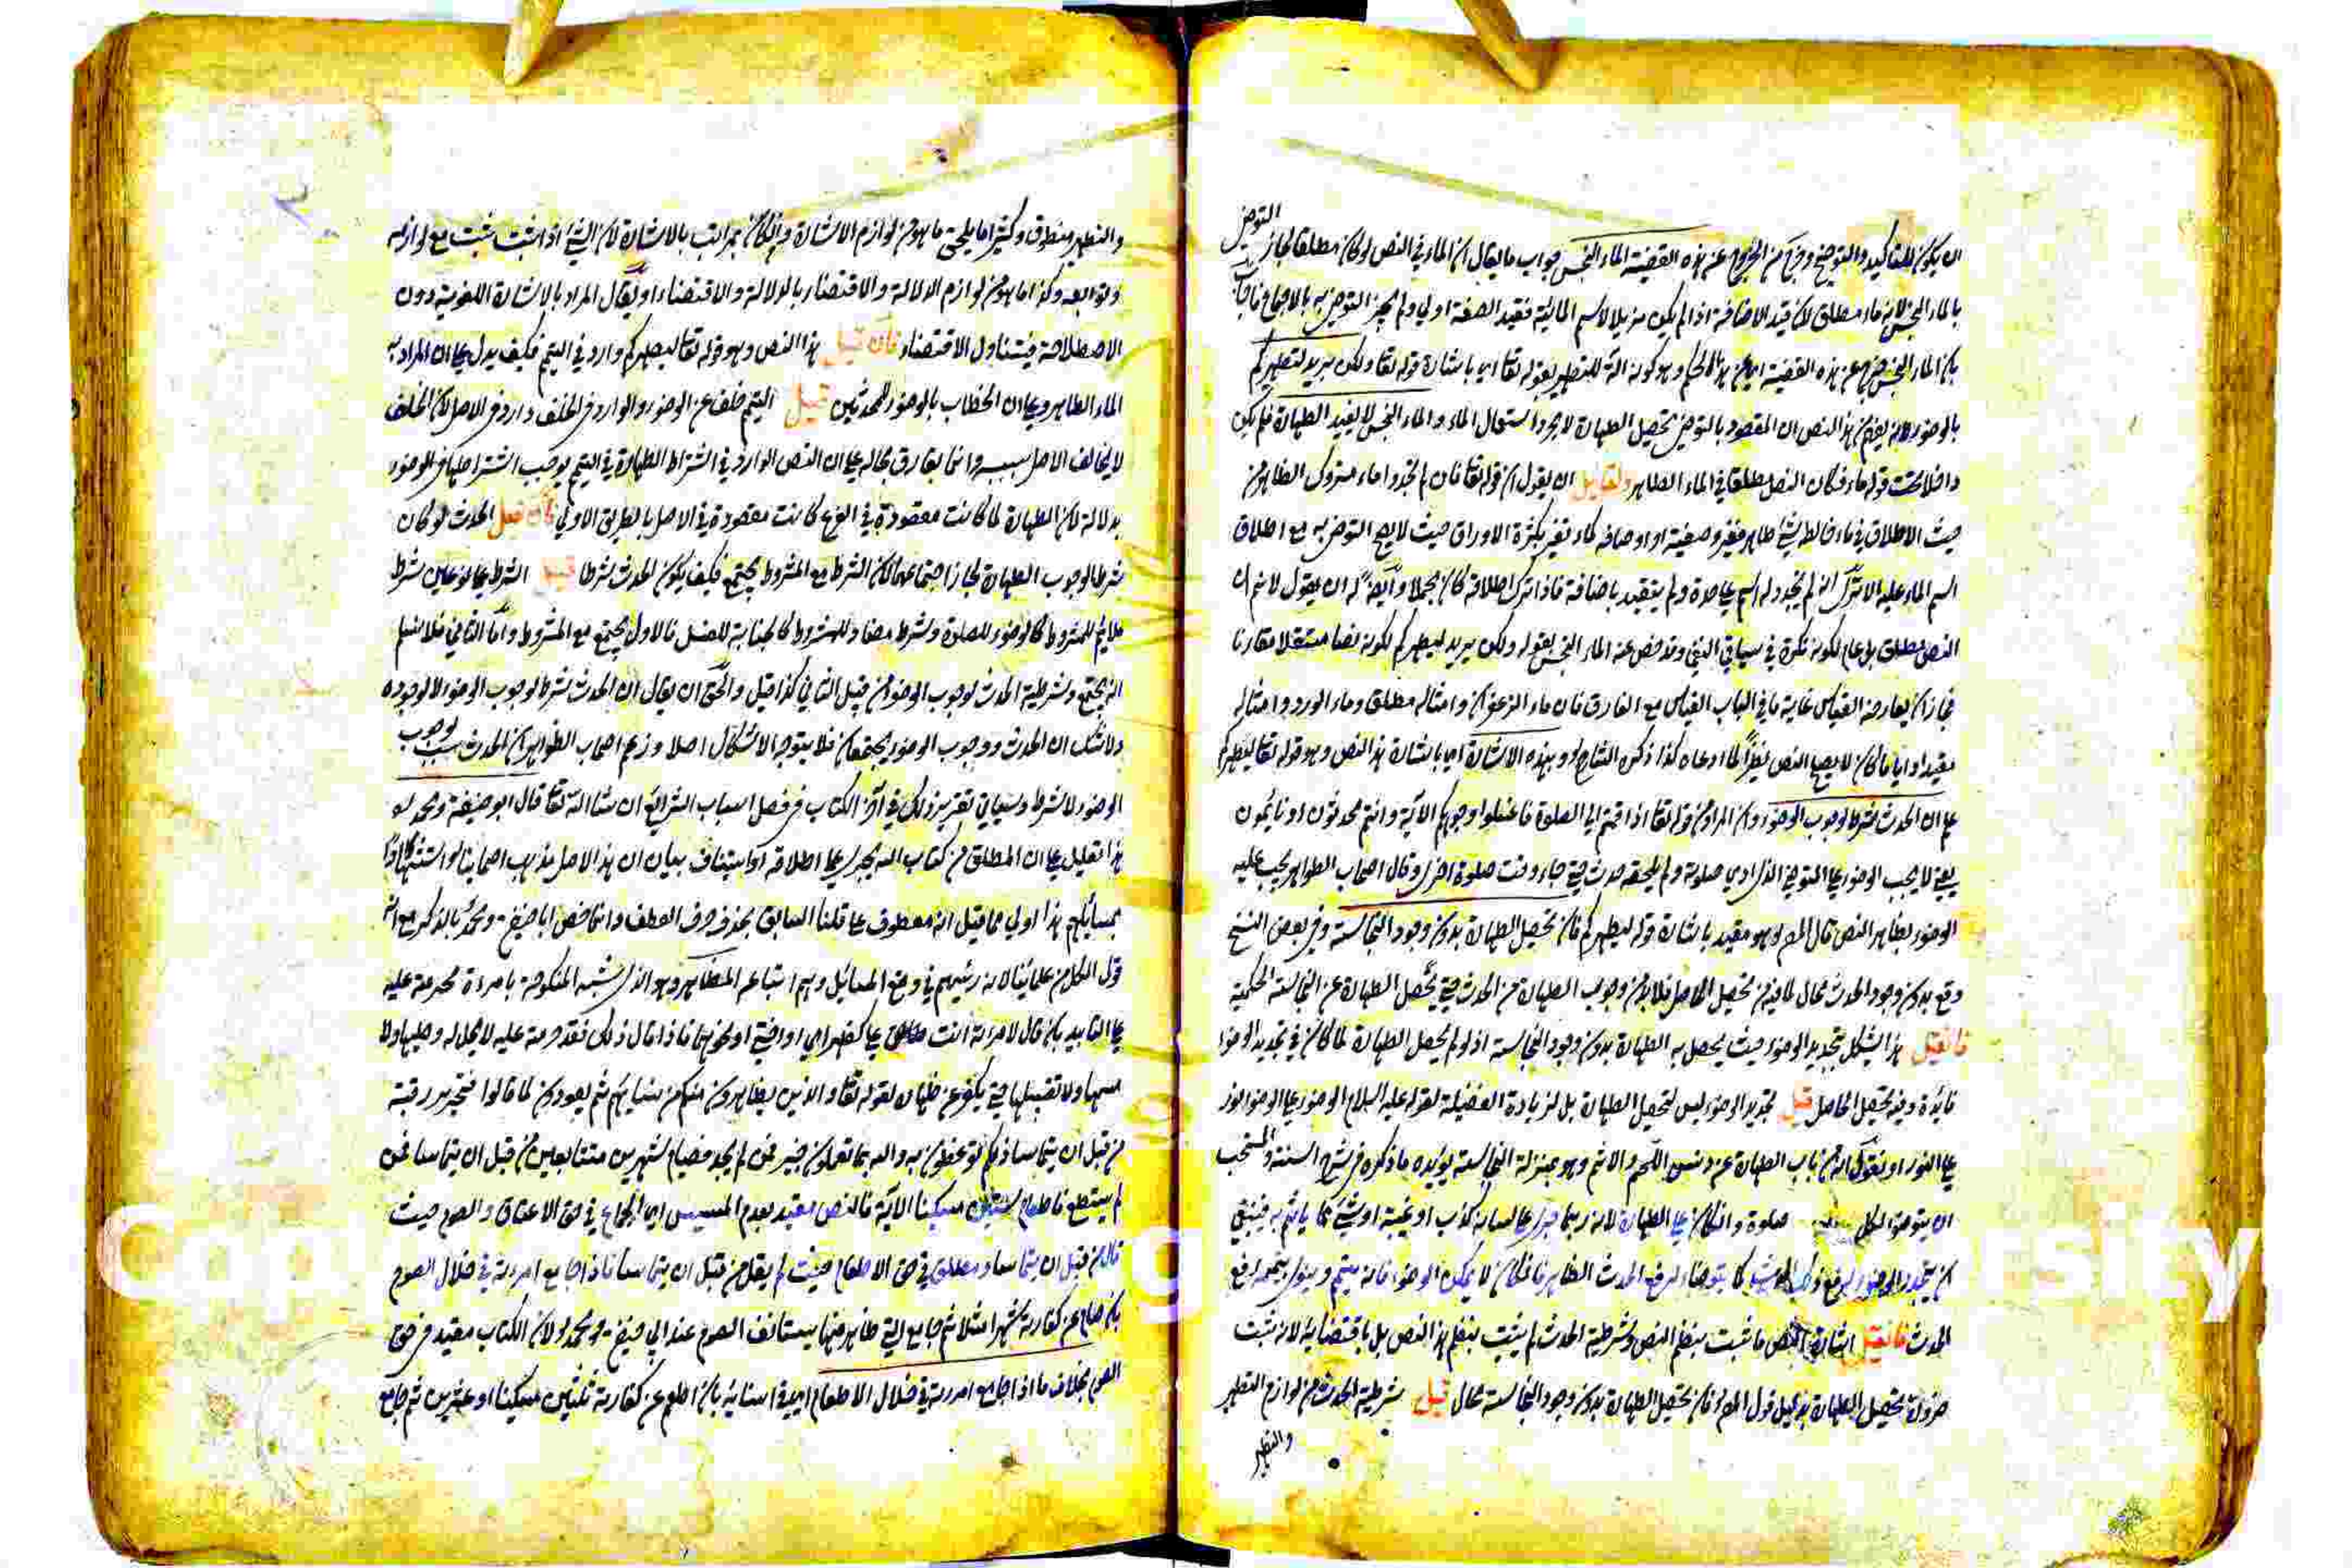 ان يكون للتاكيد والتوضيح وخرج من الخروج عن هذه القضية الماء النجس جواب ما يقال ان الماء في النص لو كان مطلقا لجاز التوضى
بالماء النجس لانه ماء مطلق لان قيد الاضافة اذا لم يكن مزيلا لاسم المائية فقيد الصفة اولى ولم يجز التوضى به بالاجماع فاجاب
بان الماء النجس خرج عن هذه القضية اي عن هذا الحكم وهو كونه آلة للتطهير بقوله تعا اي باشارة قوله تعا ولكن يريد ليطهركم
بالوضوء لانه يفهم من هذا النص ان المقصود بالتوضى تحصيل الطهارة لا مجرد استعمال الماء والماء النجس لا يفيد الطهارة فلم يكن
داخلا تحت قوله ماء فكان النص مطلقا في الماء الطاهر ولقايل ان يقول ان قوله تعا فان لم تجدوا ماء متروك الظاهر من
حيث الاطلاق في ماء خالطه شئ طاهر فغير وصفيه او اوصافه كماء تغير بكثرة الاوراق حيث لا يصح التوضى به مع اطلاق
اسم الماء عليه الا ترى انه لم يتجدد له اسم على حدة ولم يتقيد باضافة فاذا ترك اطلاقه كان مجملا وايضا له ان يقول لا نم ان
النص مطلق بل عام لكونه نكرة في سياق النفي وقد خص عنه الماء النجس بقوله ولكن يريد ليطهركم لكونه نصا مستقلا مقارنا
فجاز ان يعارضه القياس غاية ما في الباب القياس مع الفارق فان ماء الزعفران وامثاله مطلق وماء الورد وامثاله
مقيد او اياما كان لا يصح النص نظيرا لما ادعاه كذا ذكره الشارح وبهذه الاشارة اي باشارة هذا النص وهو قوله تعا ليطهركم
علم ان الحدث شرط لوجوب الوضوء وان المراد من قوله تعا اذا قمتم الى الصلوة فاغسلوا وجوهكم الآية وانتم محدثون او نايمون
يعني لا يجب الوضوء على المتوضئ الذي ادى صلوته ولم يلحقه حدث حتى جاء وقت صلوة اخرى وقال اصحاب الظواهر يجب عليه
الوضوء بظاهر النص قال المص وهو مقيد باشارة قوله ليطهركم فان تحصيل الطهارة بدون وجود النجاسة وفي بعض النسخ
وقع بدون وجود الحدث محال لما فيه من تحصيل الحاصل فلا بد من وجوب الطهارة من الحدث حتى يتحصل الطهارة عن النجاسة الحكمية
فان قيل هذا يشكل بتجديد الوضوء حيث يحصل به الطهارة بدون وجود النجاسة اذ لو لم يحصل الطهارة لما كان في تجديد الوضوء
فائدة وفيه تحصيل الحاصل قيل تجديد الوضوء ليس لتحصيل الطهارة بل لزيادة الفضيلة لقوله عليه السلام الوضوء على الوضوء نور
على النور او نقول انه من باب الطهارة عن دنس اللمم والاثم وهو بمنزلة النجاسة يؤيده ما ذكره في شرح السنة والمستحب
ان يتوضوء لكل صلوة وان كان على الطهارة لانه ربما جرى على لسانه كذب او غيبة او شئ مما ياثم به فينبغي
ان يتجدد الوضوء لرفع ذلك كما يتوضأ لرفع الحدث الظاهر فان كان لا يمكنه الوضوء فانه يتيمم وينوي بتيممه رفع
الحدث فان قيل اشارة النص ما ثبت بنظم النص وشرطية الحدث لم يثبت بنظم هذا النص بل باقتضائه لانه ثبت
ضرورة تحصيل الطهارة بدليل قول المص فان تحصيل الطهارة بدون وجود النجاسة محال قيل شرطية الحدث من لوازم التطهير
والتطهير
والتطهير منطوق وكثيرا ما يلحق ما هو من لوازم الاشارة وان كان بمراتب بالاشارة لان الشئ اذا ثبت ثبت مع لوازمه
وتوابعه وكذا ما هو من لوازم الدلالة والاقتضاء بالدلالة والاقتضاء او يقال المراد بالاشارة اللغوية دون
الاصطلاحية فيتناول الاقتضاء فان قيل هذا النص وهو قوله تعا ليطهركم وارد في التيمم فكيف يدل على ان المراد به
الماء الطاهر وعلى ان الخطاب بالوضوء للمحدثين قيل التيمم خلف عن الوضوء والوارد في الخلف وارد في الاصل لان الخلف
لا يخالف الاصل بسببه وانما يفارق بحاله على ان النص الوارد في اشتراط الطهارة في التيمم يوجب اشتراطها في الوضوء
بدلالة لان الطهارة لما كانت مقصودة في الفرع كانت مقصودة في الاصل بالطريق الاولى فان قيل الحدث لو كان
شرطا لوجوب الطهارة لجاز اجتماعهما لان الشرط مع المشروط يجتمع فكيف يكون الحدث شرطا قيل الشرط على نوعين شرط
ملايم للمشروط كالوضوء للصلوة وشرط مضاد للمشروط كالجنابة للغسل فالاول يجتمع مع المشروط واما الثاني فلا نسلم
انه يجتمع وشرطية الحدث لوجوب الوضوء من قبيل الثاني كذا قيل والحق ان يقال ان الحدث شرط لوجوب الوضوء لا لوجوده
ولا شك ان الحدث ووجوب الوضوء يجتمعان فلا يتوجه الاشكال اصلا وزعم اصحاب الظواهر ان الحدث سبب وجوب
الوضوء لا شرط وسياتي تقرير ذلك في آخر الكتاب في فصل اسباب الشرائع ان شاء الله تعا قال ابو حنيفة ومحمد
هذا تعليل على ان المطلق من كتاب الله يجري على اطلاقه او استيناف بيان ان هذا الاصل مذهب اصحابنا
بمسائلهم هذا اولى مما قيل انه معطوف على قلنا السابق بحذف حرف العطف وانما خص ابا حنيفة ومحمد بالذكر مع انه
قول الكل من علمائنا لانه رئيسهم في وضع المسائل وهم اتباعه المظاهر وهو الذي شبه المنكوحة بامراة محرمة عليه
على التابيد بان قال لامراته انت علي كظهر امي او اختي او نحوهما فاذا قال ذلك فقد حرمت عليه لا يحل له وطيها ولا
مسها ولا تقبيلها حتى يكفر عن ظهاره لقوله تعا والذين يظاهرون منكم من نسايهم ثم يعودون لما قالوا فتحرير رقبة
من قبل ان يتماسا ذلكم توعظون به والله بما تعملون خبير فمن لم يجد فصيام شهرين متتابعين من قبل ان يتماسا فمن
لم يستطع فاطعام ستين مسكينا الآية فالنص مقيد بعدم المسيس اي الجماع في حق الاعتاق والصوم حيث
قال من قبل ان يتماسا ومطلق في حق الاطعام حيث لم يقل من قبل ان يتماسا فاذا جامع امراته في خلال الصوم
بان صام عن كفارته شهرا مثلا ثم جامع التي ظاهر منها يستانف الصوم عند ابي حنيفة ومحمد لان الكتاب مقيد في حق
الصوم بخلاف ما اذا جامع امراته في خلال الاطعام اي في اثنائه بان اطعم عن كفارته ثلثين مسكينا او عشرين ثم جامع